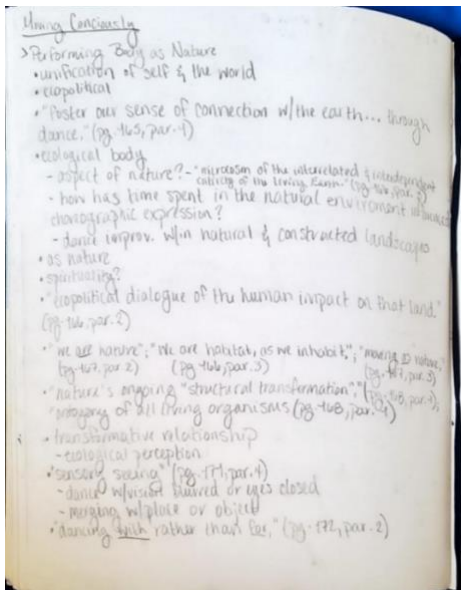 Moving Conciously
>Performing Body as Nature
•unification of self & the world
•ecopolitical
•"foster our sense of connection w/the earth... through
dance." (pg.165, par.1)
•ecological body
- aspect of nature? - "microcosm of the interrelated & interdependent
entirety of the living Earth." (pg.166, par.
- how has time spent in the natural enviroment influenced
choreographic expression?
- dance improv. w/in natural & constructed landscapes
•as nature
•spirituality?
•"ecopolitical dialogue of the human impact on that land."
(pg.166, par.2)
•"we are nature"; "we are habitat, as we inhabit,"; "moving as nature,"
(pg.167, par 2) (pg.166, par.3) (pg.167, par.3)
•"nature's ongoing "structural transformation"," (pg.168, par.1),
"ontogeny of all living organisms (pg.168, par.
•transformative relationship
- ecological perception
•"sensory seeing" (pg.171, par.4)
- dance w/vision blurred or eyes closed
- merging w/place or object
•"dancing with rather than for," (pg.172, par.2)